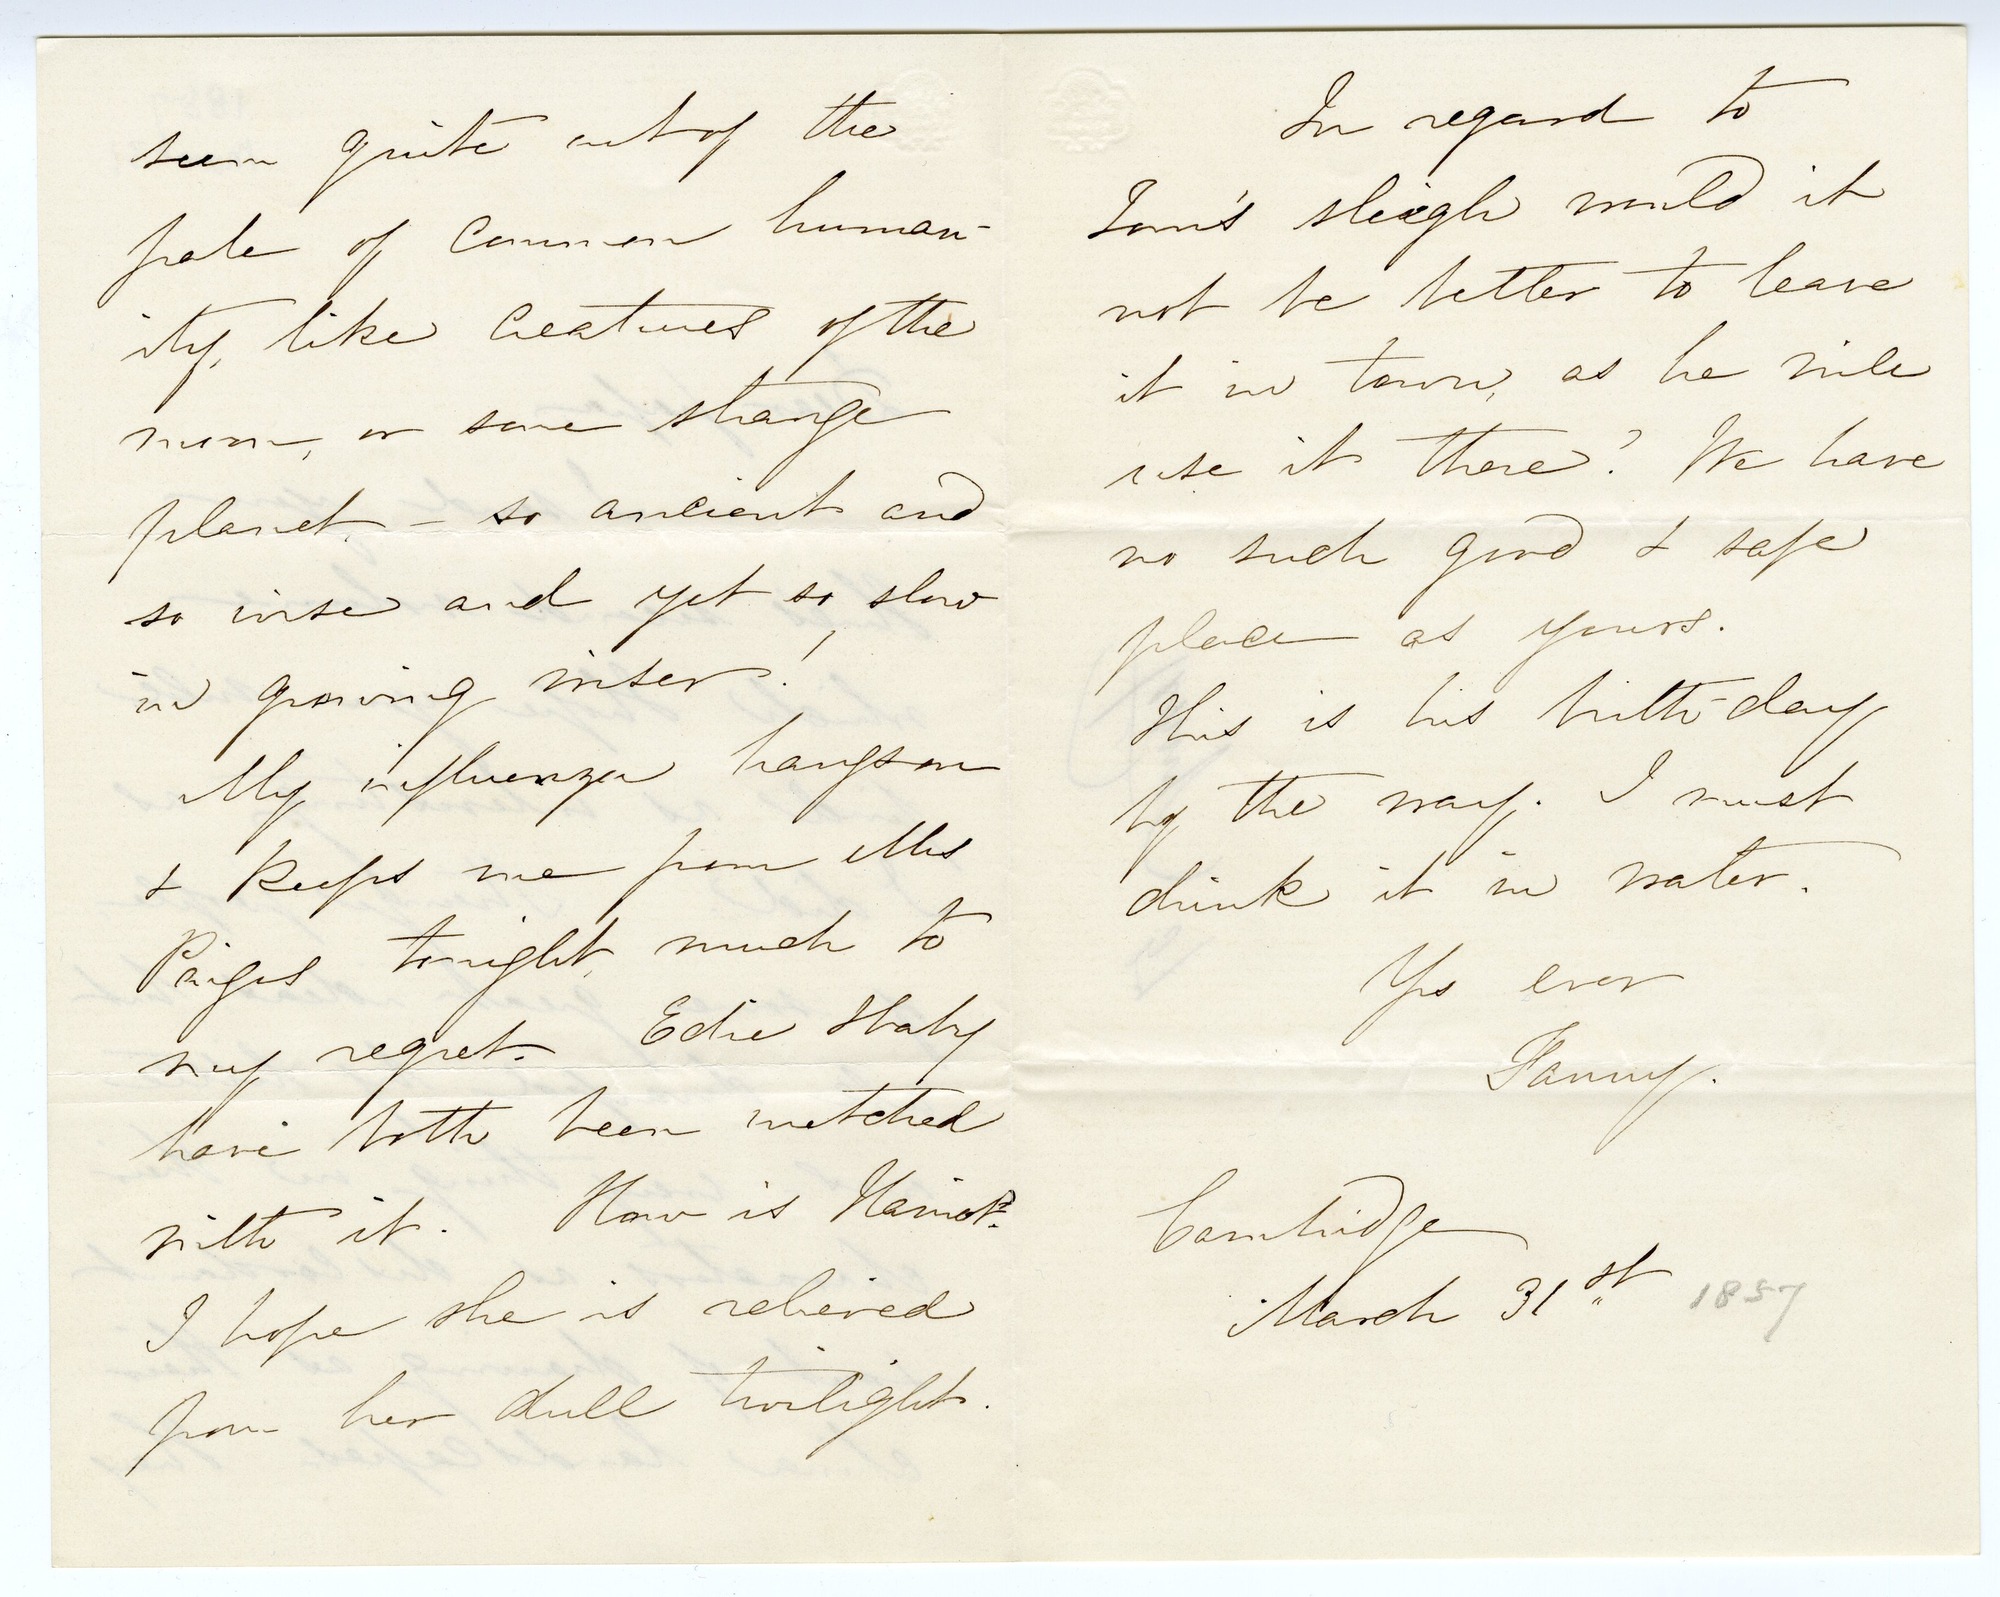 seem quite out of the
pale of common human-
ity, like creatures of the
moon, or some strange
planet, – so ancient and
so wise and yet so slow
in growing wiser!
My influenza hangs on
& keeps me from Mrs
Paiges tonight, much to
my regret. Edie & baby
have both been wretched
with it. How is Harriot?
I hope she is relieved
from her dull twilight.
In regard to
Tom's sleigh would it
not be better to leave
it in town, as he will
use it there? We have
no such good & safe
place as yours.
This is his birth-day
by the way. I must
drink it in water.
Yrs ever
Fanny.
Cambridge
March 31st 1857